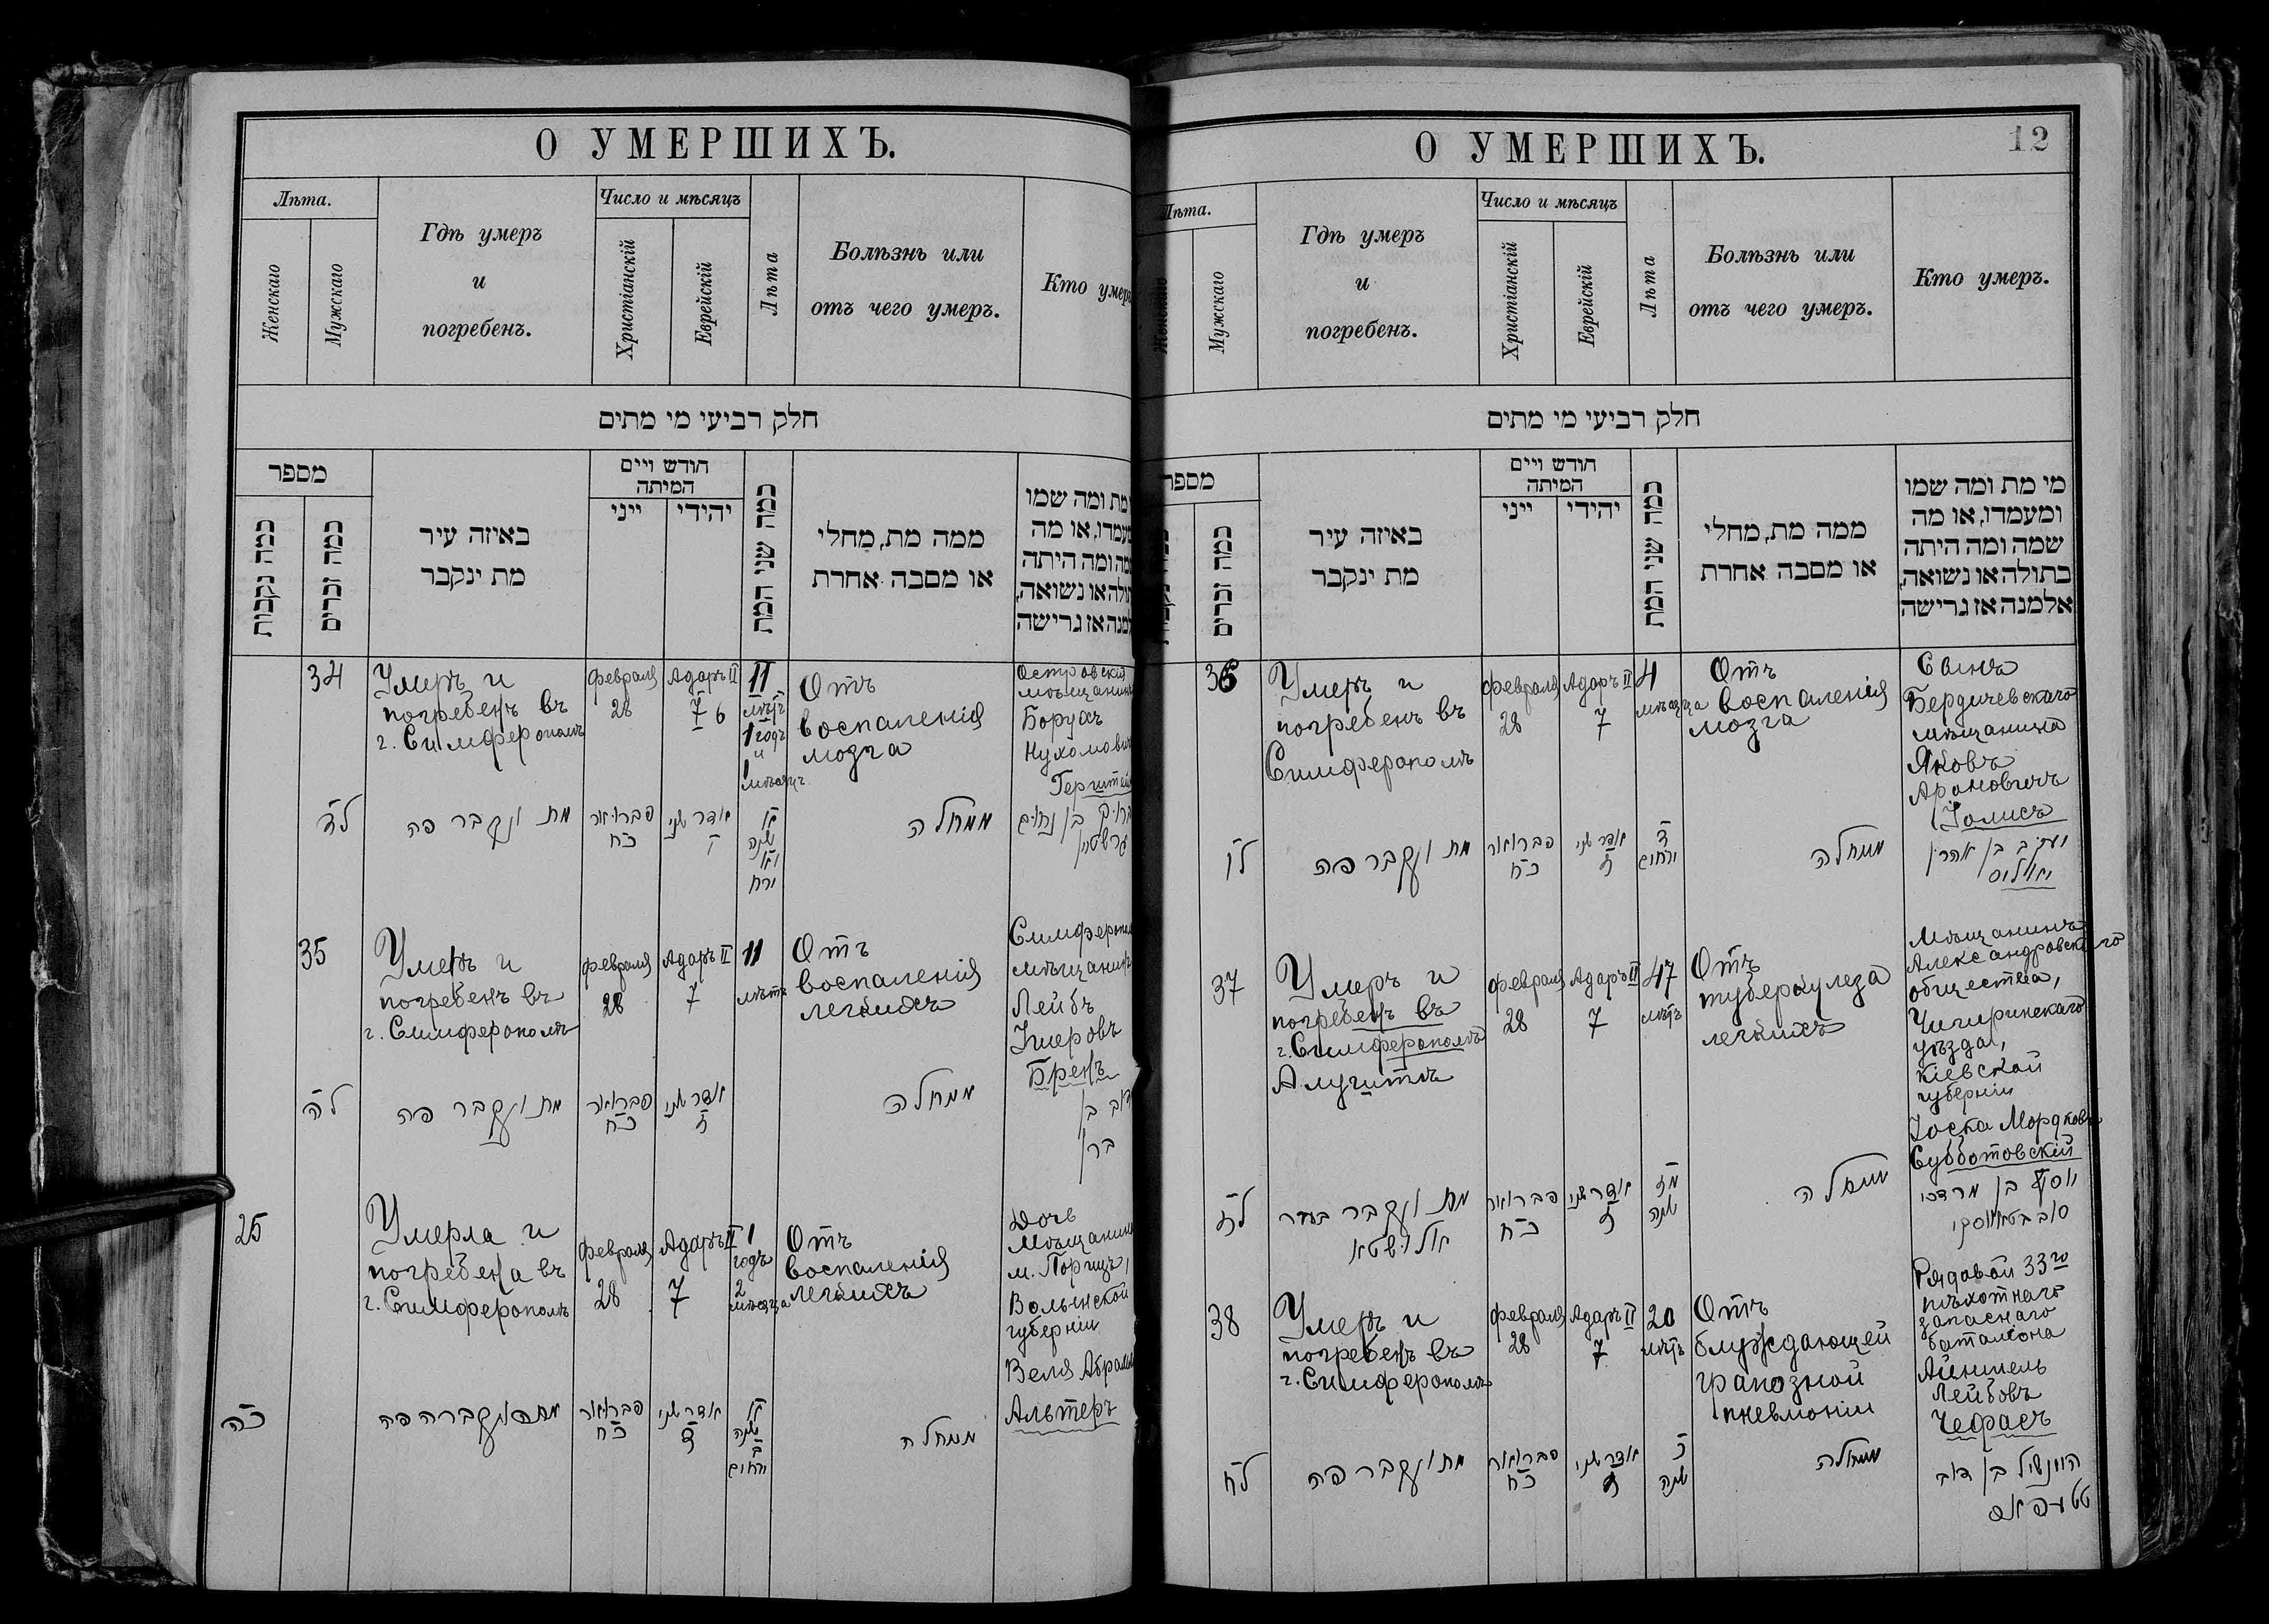 О УМЕРШИХЪ.
Лѣта.
Женскаго
Мужскаго
Гдѣ умеръ
и
погребенъ.
Число и мѣсяцъ
Христіанскій
Еврейскій
Лѣта
Болѣзнь или
отъ чего умеръ.
Кто умеръ
חלק רביעי מי מתים
מספר
כמה נקבות
כמה זכרים
באיזה עיר
מת ינקבר
חודש ויים
המיתה
ייני
יהודי
כמה שני המת
ממה מת, מחלי
או מסבה אחרת
מת ומה שמו
או מה
ומה היתה
או נשואה,
אז גרישה
34
Умеръ и
погребенъ въ
г. Симферополѣ
Февраля
28
Адаръ II
7 6
11
лѣтъ
1 годъ
и
1
мѣсяцъ
Отъ
воспаленія
мозга
Островскій
мѣщанинъ
Борухъ
Нухомович
Герштей
לד
מת ונקבר פה
פברואר
כח
אדר שני
ממחלה
35
Умеръ и
погребенъ въ
г. Симферополѣ
Февраля
28
Адаръ II
7
11
лѣтъ
Отъ
воспаленія
легкихъ
Симферопол
мѣщанинъ
Лейбъ
Умеровъ
Бренъ
לה
מת ונקבר פה
פברואר
כח
אדר שני
ז
ממחלה
25
Умерла и
погребена въ
г. Симферополѣ
Февраля
28
Адаръ II
7
1
годъ
2
мѣсяца
Отъ
воспаленія
легкихъ
Дочь
мѣщанина
м. Порицъ,
Волынской
губерніи
Веля Абрам
Альтеръ
כה
פברואר
כח
אדר שני
ממחלה
12
О УМЕРШИХЪ.
Лѣта.
Мужскаго
Гдѣ умеръ
и
погребенъ.
Число и мѣсяцъ
Христіанскій
Еврейскій
Лѣта
Болѣзнь или
отъ чего умеръ.
Кто умеръ.
חלק רביעי מי מתים
מספר
כמה זכרים
באיזה עיר
מת ינקבר
חודש ויים
המיתה
ייני
יהודי
כמה שני המת
ממה מת, מחלי
או מסבה אחרת
מי מת ומה שמו
ומעמדו, או מה
שמה ומה היתה
בתולה או נשואה,
אלמנה אז גרישה
36
Умеръ и
погребенъ въ
Симферополѣ
Февраля
28
Адаръ II
7
4
мѣсяца
Отъ
воспаленія
мозга
Сынъ
Бердичевскаго
мѣщанина
Яковъ
Ароновичъ
לו
מת ונקבר פה
פברואר
כח
אדר שני
ז
ד
ממחלה
יעקב בן אהרן
37
Умеръ и
погребенъ въ
г. Симферополѣ
Февраля
28
Адаръ II
7
47
лѣтъ
Отъ
туберкулеза
легкихъ
Мѣщанинъ
Александровскаго
общества,
Чигиринскаго
уѣзда,
Кіевской
губерніи
Іоска Мордковъ
Субботовскій
לז
מת ונקבר בעיר
אלושטא
פברואר
כח
אדר שני
ז
מז
שנה
ממחלה
יוסף בן מרדכי
38
Умеръ и
погребенъ въ
г. Симферополѣ
Февраля
28
Адаръ II
7
20
лѣтъ
Отъ
блуждающей
пневмоніи
Рядовой 33го
пѣхотнаго
запаснаго
баталіона
Лейбовъ
Чефасъ
לח
מת ונקבר פה
פברואר
כח
אדר שני
ז
כ
שנה
ממחלה